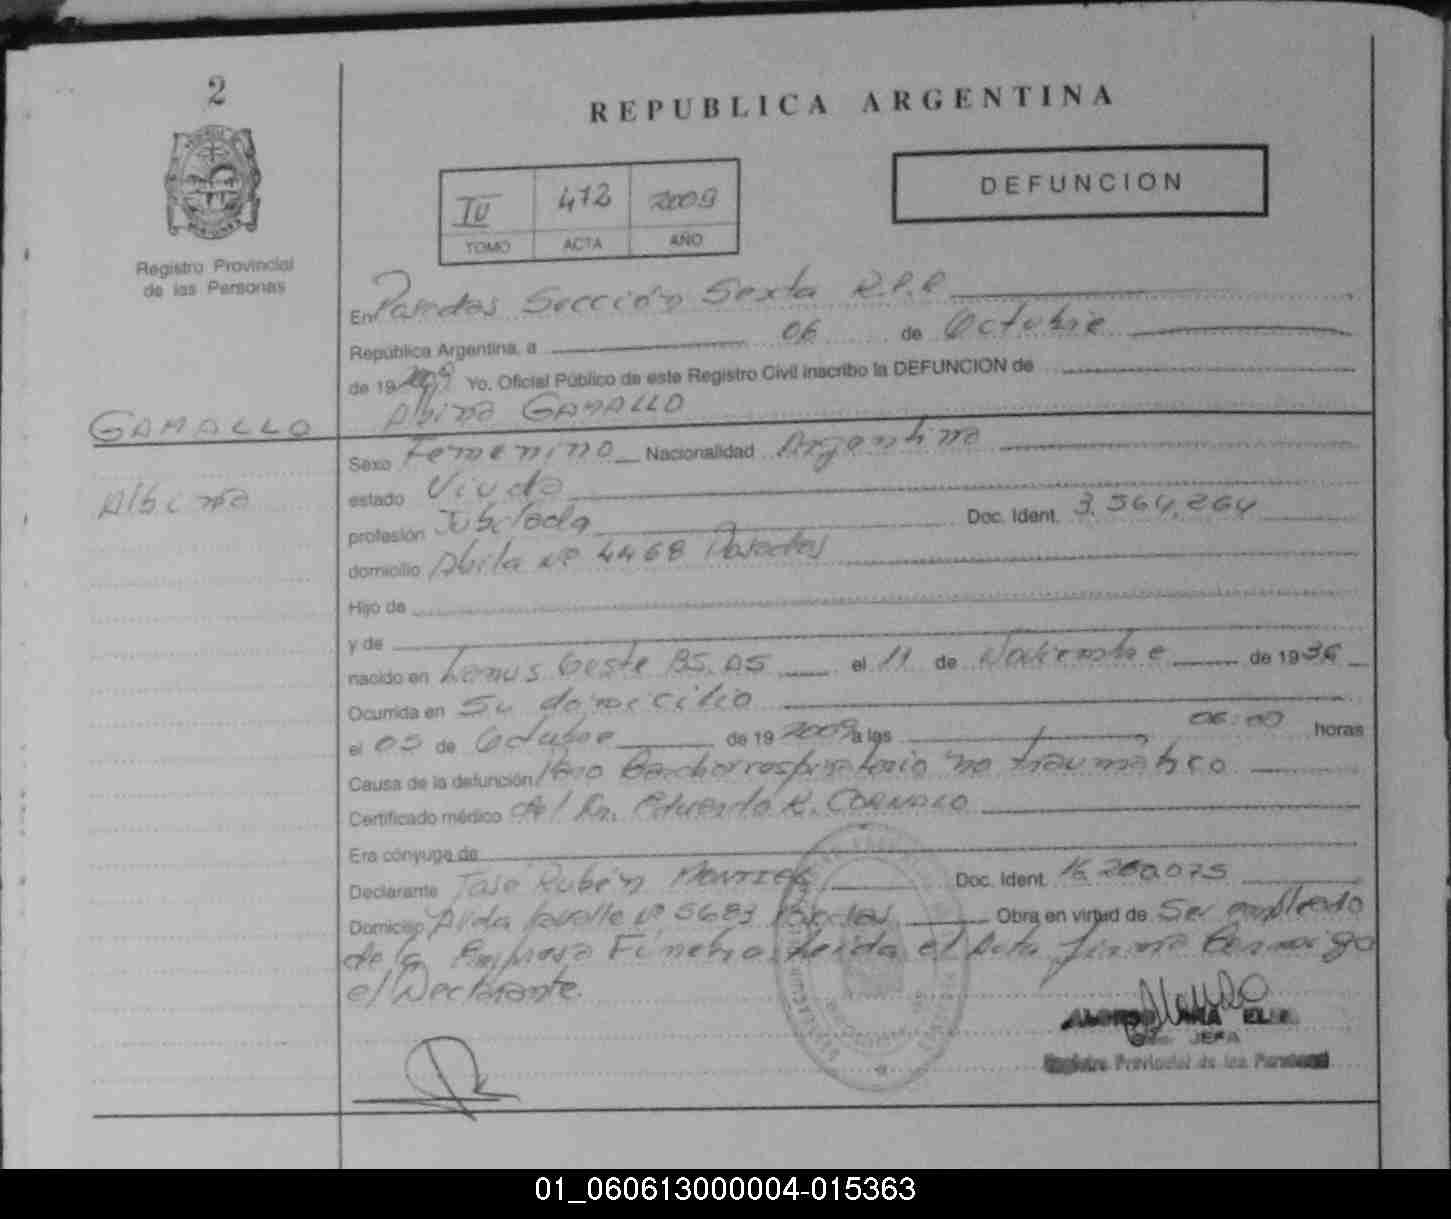 2
REPUBLICA ARGENTINA
DEFUNCION
IV 472 2009
TOMO ACTA AÑO
Registro Provincial
de las Personas
En Posadas Sección Sexta R.P.P
República Argentina, a 06 de Octubre
de 19 2009 Yo, Oficial Público de este Registro Civil inscribo la DEFUNCION de
Albina GAMALLO
GAMALLO
Albina
Sexo Femenino Nacionalidad Argentina
estado Viuda
profesión Jubilada Doc. Ident. 3.564.264
domicilio Avila Nº 4468 Posadas
Hijo de
y de
nacido en Lanus Oeste BS.AS el 11 de Noviembre de 1936
Ocurrida en Su domicilio
el 05 de Octubre de 19 2009 a las 06:00 horas
Causa de la defunción Paro Cardiorrespiratorio no traumático
Certificado médico del Dr. Eduardo R.
Era cónyuge de
Declarante José Rubén MONTIEL Doc. Ident. 16.200.075
Domicilio Nº 5683 Posadas Obra en virtud de Ser empleado
de la Empresa Fúnebre, leída el Acta firma Conmigo
el Declarante.
JEFA
Registro Provincial de las Personas
01_060613000004-015363